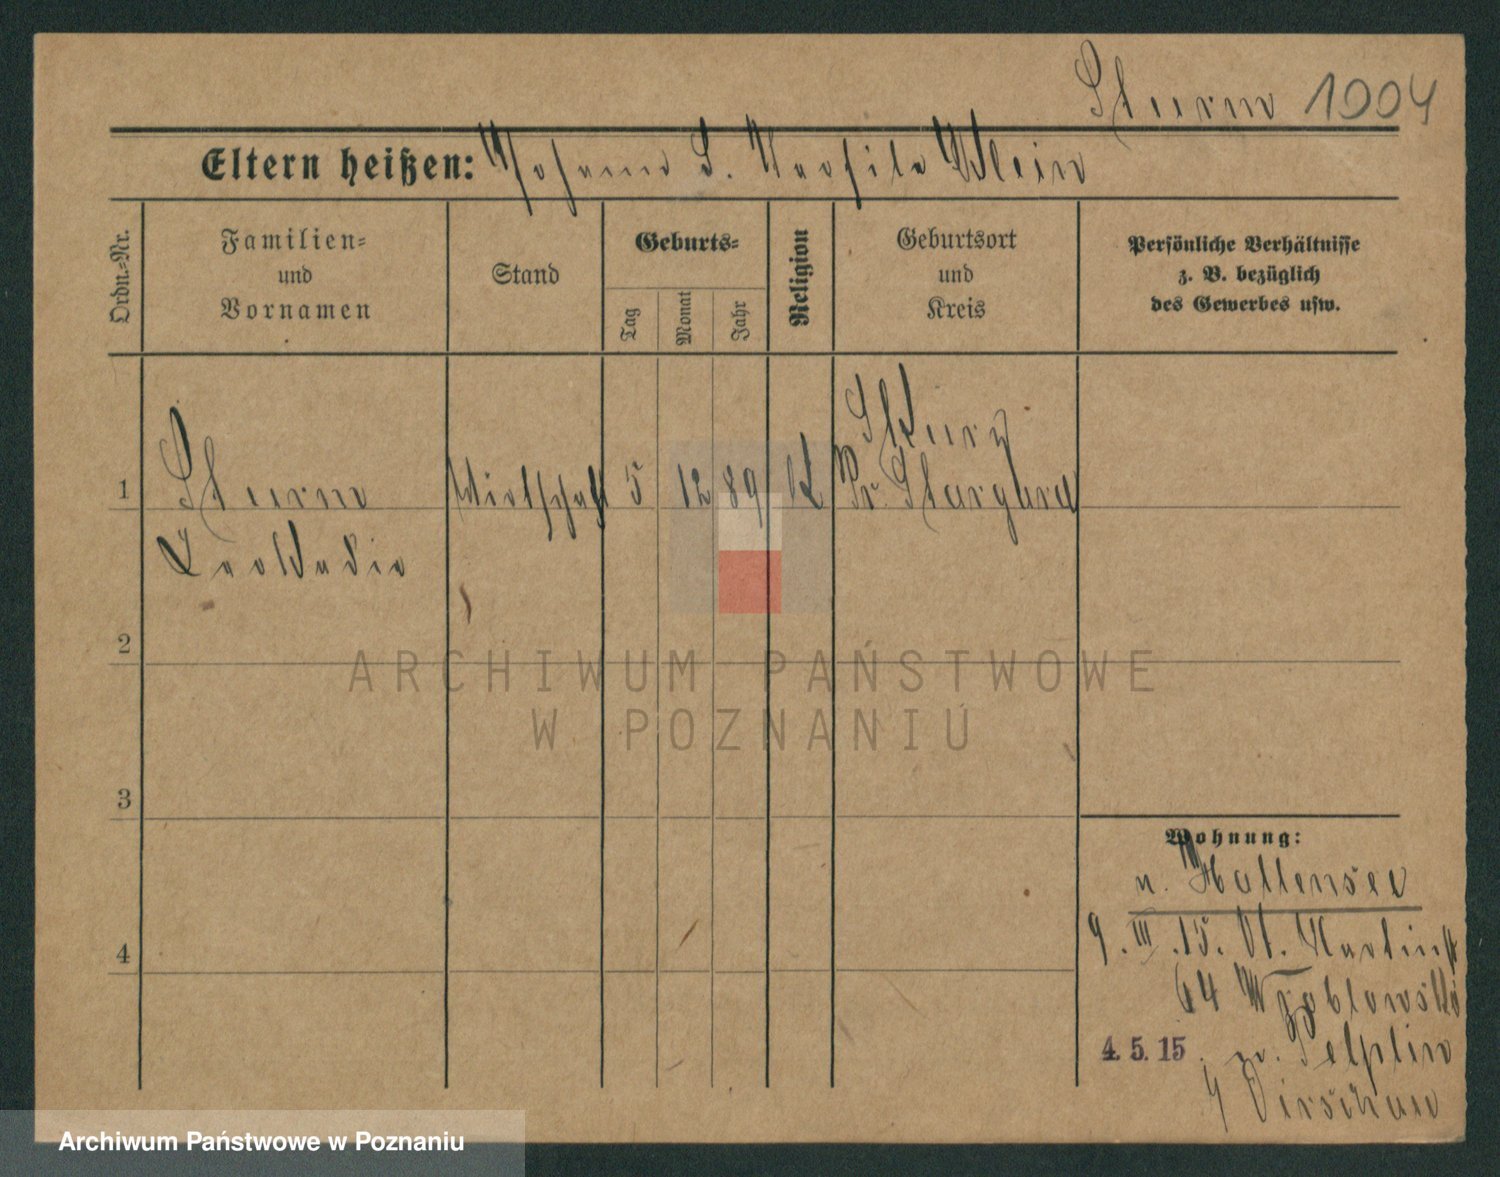 Sturm 1904
Eltern heißen: Johann S. Teofila Klein
Ordn.-Nr.
Familien-
und
Vornamen
Stand
Geburts-
Tag
Monat
Jahr
Religion
Geburtsort
und
Kreis
Persönliche Verhältnisse
z. B. bezüglich
des Gewerbes usw.
1
Sturm
Leokadia
Wirtschaft
5
12
89
K
Skurz
Pr. Stargard
2
3
4
Wohnung:
n. Hallensee
9. III. 15. St. Martinst
64
4. 5. 15. n. Pelplin
Dirschau
ARCHIWUM PAŃSTWOWE
W POZNANIU
Archiwum Państwowe w Poznaniu